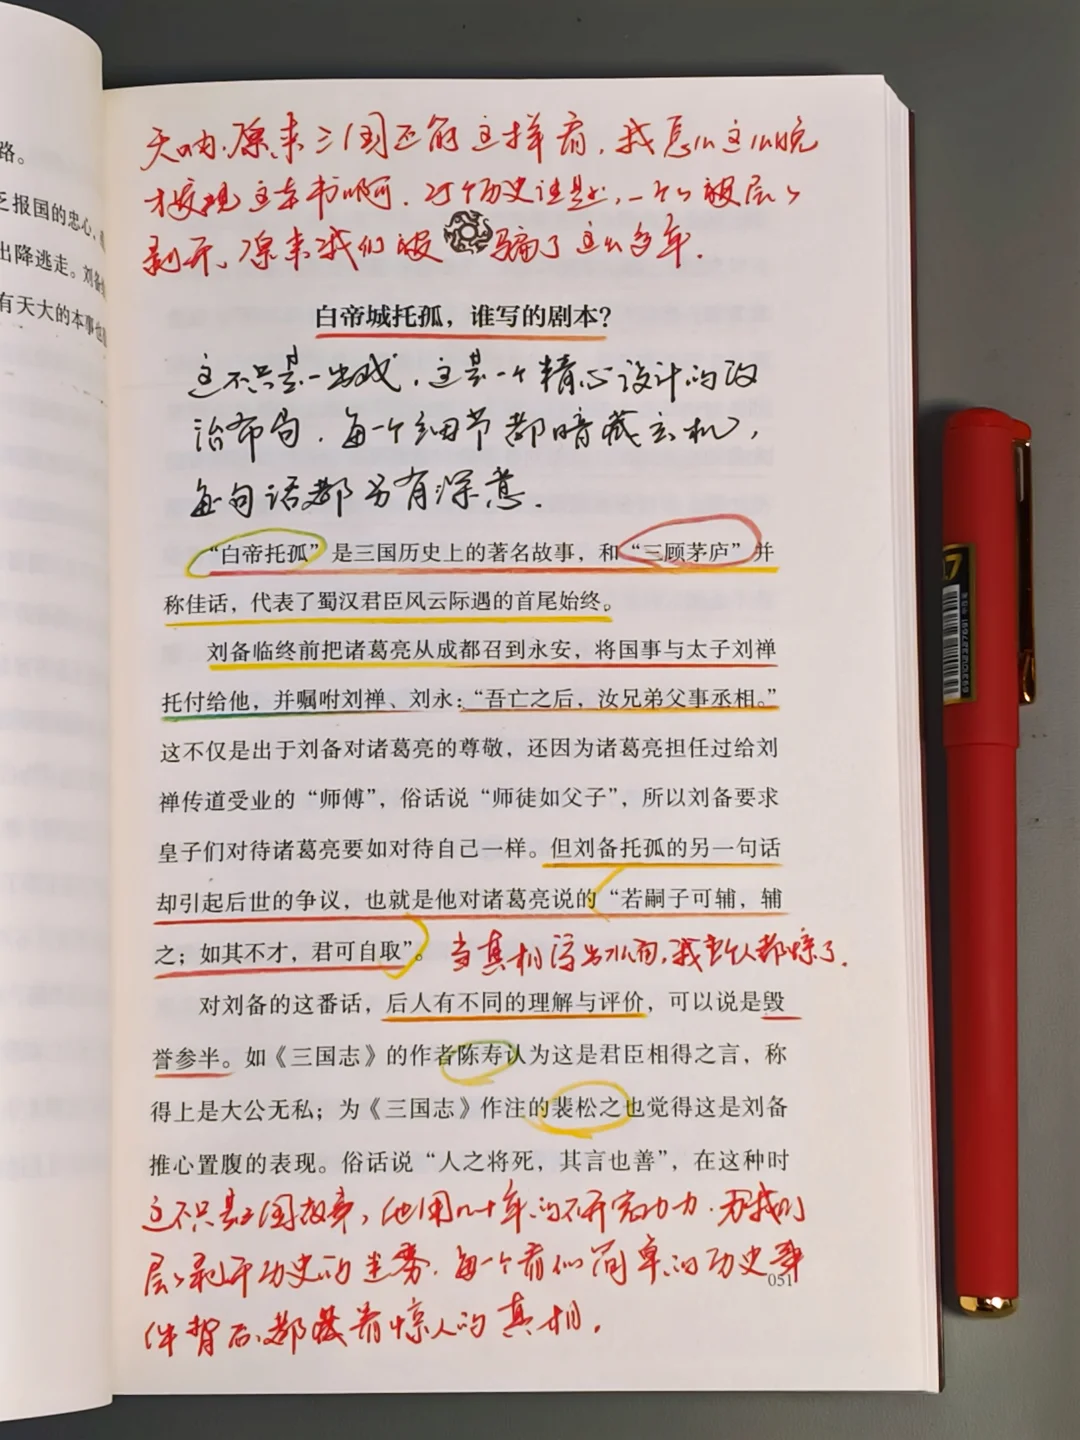 路。
乏报国的忠心、
出降逃走。刘备
有天大的本事也
天呐，原来三国还能这样看，我怎么这么晚
才发现这本书啊，对个历史谜题，一个个被层层
剥开，原来我们被骗了这么多年．
白帝城托孤，谁写的剧本？
这不只是一出戏，这是一个精心设计的政
治布局．每一个细节都暗藏玄机，
每句话都另有深意．
“白帝托孤”是三国历史上的著名故事，和“三顾茅庐”并
称佳话，代表了蜀汉君臣风云际遇的首尾始终。
刘备临终前把诸葛亮从成都召到永安，将国事与太子刘禅
托付给他，并嘱咐刘禅、刘永：“吾亡之后，汝兄弟父事丞相。”
这不仅是出于刘备对诸葛亮的尊敬，还因为诸葛亮担任过给刘
禅传道受业的“师傅”，俗话说“师徒如父子”，所以刘备要求
皇子们对待诸葛亮要如对待自己一样。但刘备托孤的另一句话
却引起后世的争议，也就是他对诸葛亮说的“若嗣子可辅，辅
之；如其不才，君可自取”。
当真相浮出水面，我整个人都惊了．
对刘备的这番话，后人有不同的理解与评价，可以说是毁
誉参半。如《三国志》的作者陈寿认为这是君臣相得之言，称
得上是大公无私；为《三国志》作注的裴松之也觉得这是刘备
推心置腹的表现。俗话说“人之将死，其言也善”，在这种时
这不只是三国故事，他用几十年的研究功力．为我们
层层剥开历史的迷雾．每一个看似简单的历史事
件背后，都藏着惊人的真相．
051